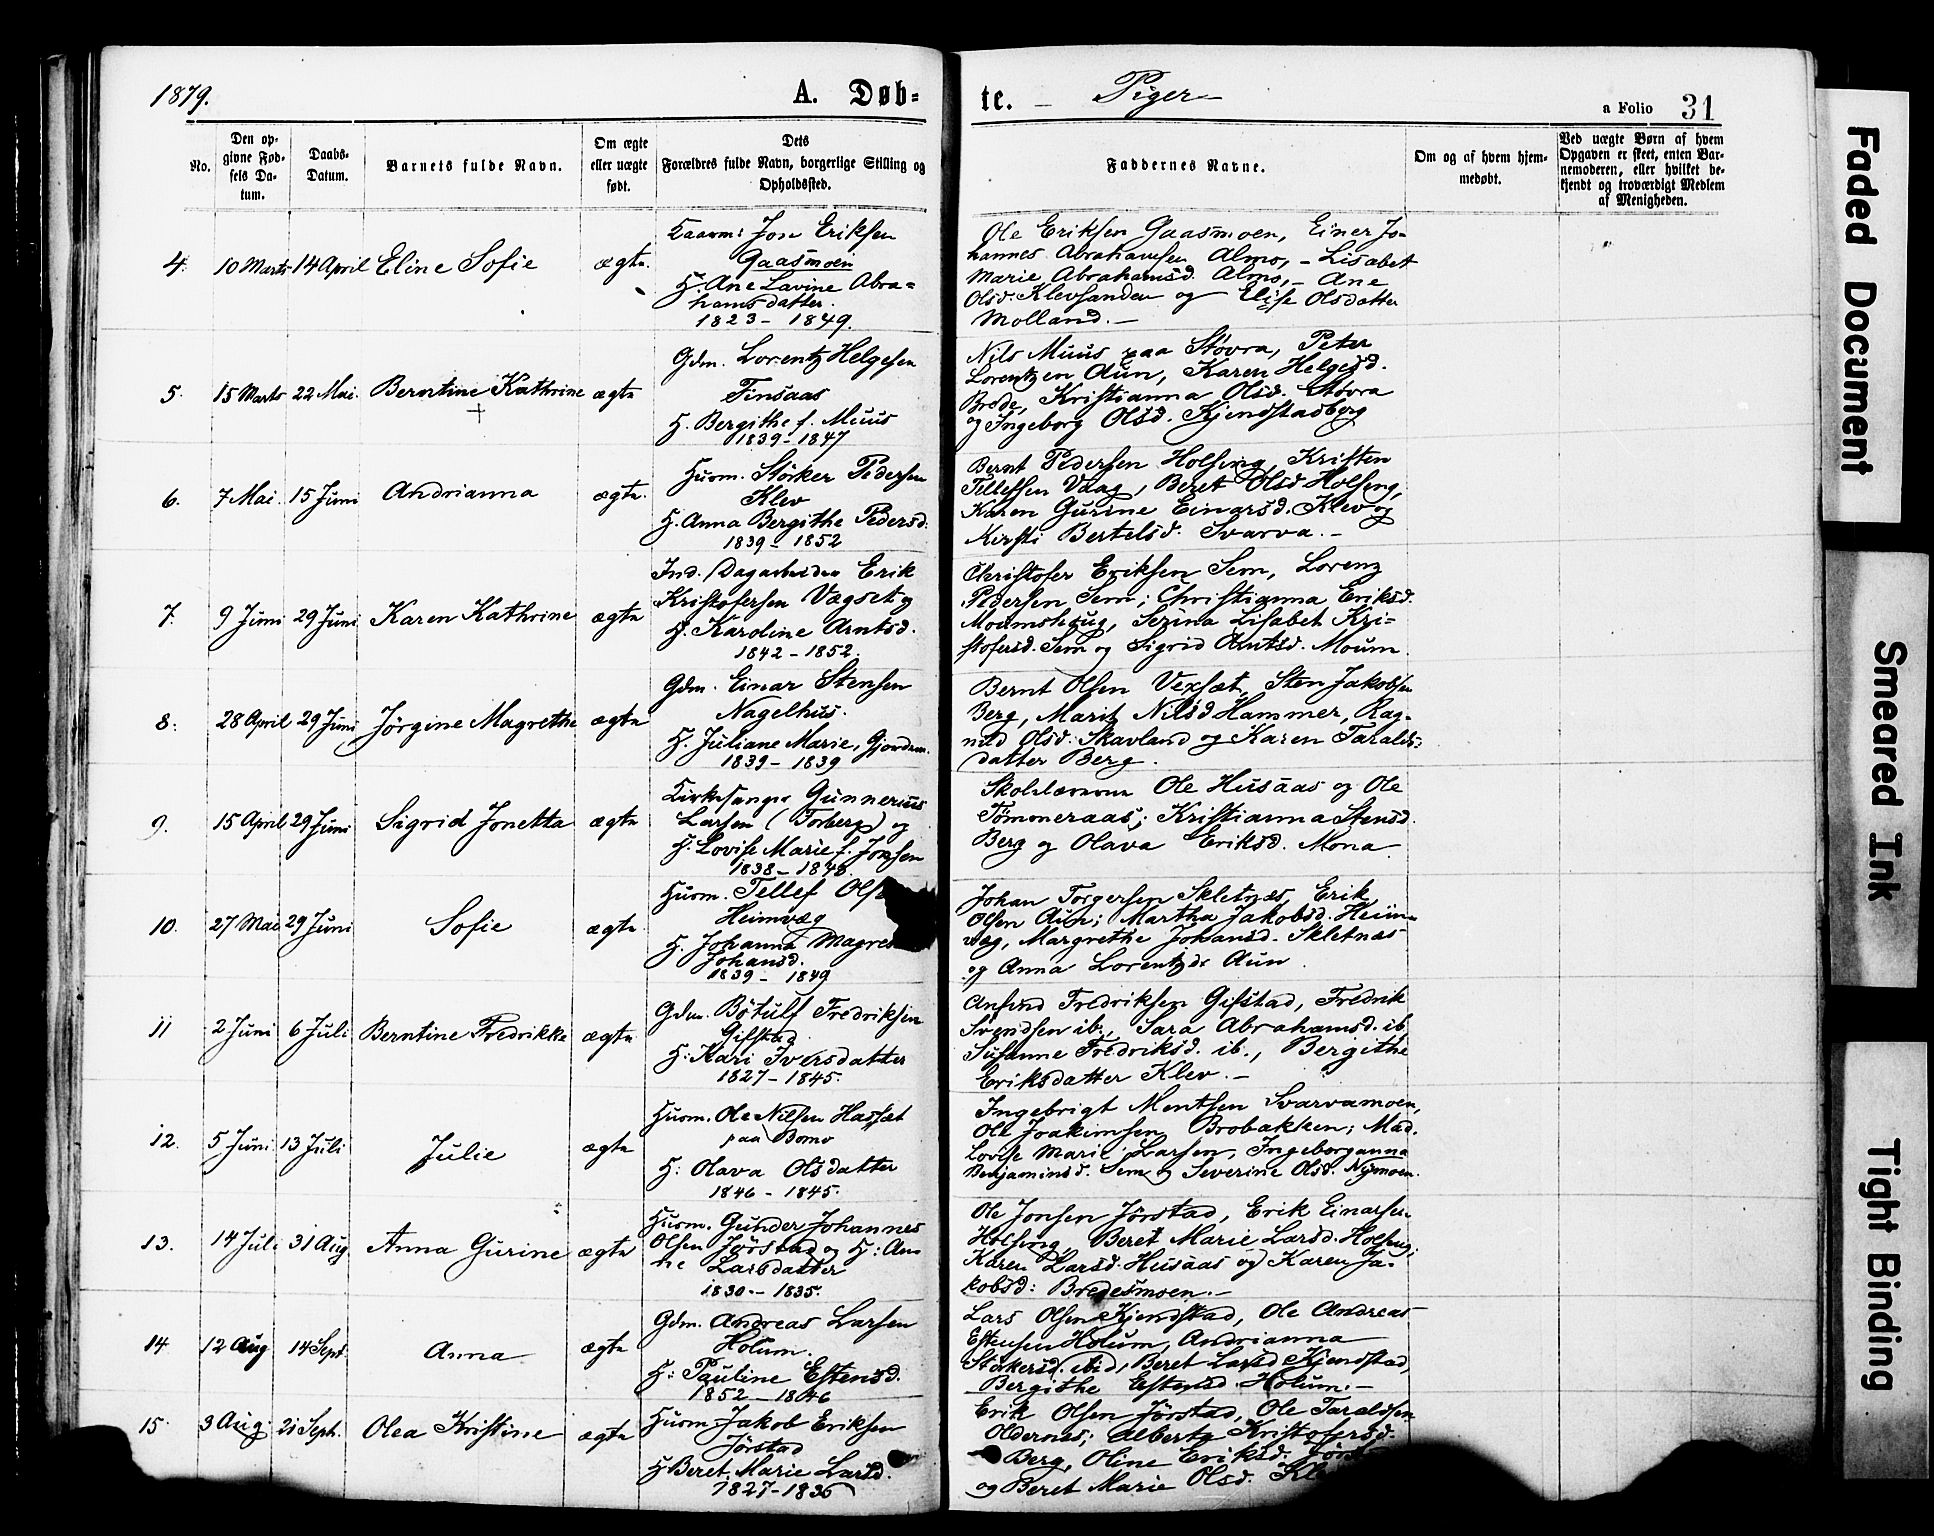 1879.
A. Døb=
te. — Piger —
a Folio 31
No.
Den op-
givne Fød-
sels Da-
tum.
Daabs-
Datum.
Barnets fulde Navn.
Om ægte
eller uægte
født.
Dets
Forældres fulde Navn, borgerlige Stilling og
Opholdssted.
Faddernes Navne.
Om og af hvem hjem-
medøbt.
Ved uægte Børn af hvem
Opgaven er skeet, enten Bar-
nemoderen, eller hvilket be-
kjendt og troværdigt Medlem
af Menigheden.
4. 10 Marts 14 April Eline Sofie ægte.
Kaarm: Jon Eriksen
Gaasmoen
H. Ane Lavine Abra=
hamsdatter.
1823 - 1849.
Ole Eriksen Gaasmoen, Einer Jo-
hannes Abrahamsen Almo, - Lisabet
Marie Abrahamsd. Almo, - Ane
Olsd. Klevsanden og Elise Olsdatter
Molland. —
5. 15 Marts 22 Mai. Berntine Kathrine ægte
+
Gdm. Lorentz Helgesen
Finsaas
H. Bergithe f. Muus
1839 - 1847
Nils Muus paa Støvra, Peter
Lorentzen Aun, Karen Helgesd.
Brede, Kristianna Olsd. Støvra
og Ingeborg Olsd. Kjendstadberg
6. 7 Mai. 15 Juni Andrianna ægte.
Husm. Störker Pedersen
Klev
H. Anna Bergithe Pedersd.
1839 - 1852
Bernt Pedersen Holsing, Kristen
Tellefsen Vaag, Beret Olsd Holsing,
Karen Gurine Einarsd. Klev og
Kirsti Bertelsd. Svarva. —
7. 9 Juni 29 Juni Karen Kathrine ægte
Ind. / Dagarbeider Erik
Kristofersen Vægset og
H. Karoline Arntsd.
1842 - 1852.
Christofer Eriksen Sem, Lorenz
Pedersen Sem; Christianna Eriksd.
Moumshaug, Serina Lisabet Kri=
stofersd. Sem og Sigrid Knutsd. Moum.
8. 28 April 29 Juni Jørgine Magrethe ægte
Gdm. Einar Stensen
Nagelhus.
H. Juliane Marie, Gjordsen.
1839 - 1839
Bernt Olsen Vexsæt, Sten Jakobsen
Berg, Marit Nilsd Hammer, Rag-
nild Olsd. Skavland og Karen Taralds=
datter Berg.
9. 15 April 29 Juni Sigrid Jonetta ægte
Kirkesanger Gunnerius
Larsen (Forberg) og
H. Lovise Marie f. Jonsen
1838 -
Skolelærerne Ole Husaas og Ole
Tømmeraas; Kristianna Stensd.
Berg og Olava Eriksd. Mona.
10. 27 Mai 29 Juni Sofie ægte
Husm. Tellef
Heimvæg
H. Johanna
Johansd.
1839 - 1849
Johan Torgersen Skletnæs, Erik
Olsen Aun; Martha Jakobsd. Heim-
væg, Margrethe Johansd. Skletnæs
og Anna Lorentzd: Aun.
11 2 Juni 6 Juli Berntine Fredrikke ægte
Gdm. Bøtulf Fredriksen
Gifstad
H. Kari Iversdatter
1827 - 1845.
Anfind Fredriksen Gifstad, Fredrik
Svendsen ib., Sara Abrahamsd. ib,
Susanne Fredriksd. ib., Bergithe
Eriksdatter Klev. —
12. 5 Juni 13 Juli Julie ægte
Husm. Ole Nilsen Hassæt
paa Bomo
H: Olava Olsdatter
1846 - 1845.
Ingebrigt Mentsen Svarvamoen,
Ole Joakimsen Brobakken; Mad.
Lovise Marie Larsen, Ingeborganna
Benjaminsd. Sem og Severine Olsd. Nymoen.
13. 14 Juli 31 Aug. Anna Gurine ægte
Husm. Gunder Johannes
Olsen Jørstad og H: An-
ne Larsdatter
1830 - 1835.
Ole Jonsen Jørstad, Erik Einarsen
Holsing, Beret Marie Larsd. Holsing,
Karen Larsd. Husaas og Karen Ja-
kobsd: Bredesmoen. —
14 12 Aug 14 Sept. Anna ægte
Gdm. Andreas Larsen
Holum.
H: Pauline Estensd.
1852 - 1846
Lars Olsen Kjendstad, Ole Andreas
Estensen Holum, Andrianna
Størkersd. ibid, Beret Larsd Kjendstad,
Bergithe Estensd. Holum. —
15. 3 Aug. 21 Sept. Olea Kristine ægte
Husm. Jakob Eriksen
Jørstad
H Beret Marie Larsd.
1827 - 1836
Erik Olsen Jørstad, Ole Taraldsen
Oldernes; Alberta Kristofersd.
Berg, Oline Eriksd.
og Beret Marie Olsd.
Faded Document
Smeared Ink
Tight Binding